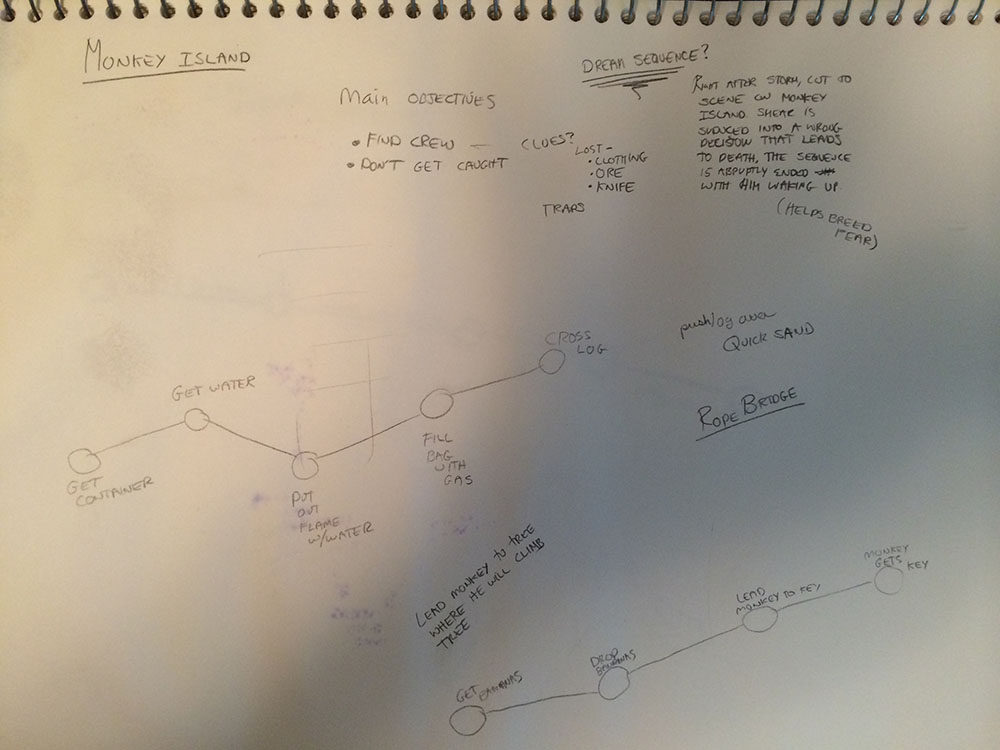 MONKEY ISLAND
Main OBJECTIVES
• FIND CREW — CLUES?
• DON'T GET CAUGHT
LOST-
• CLOTHING
• ORE
• KNIFE
TRAPS
DREAM SEQUENCE?
RIGHT AFTER STORM, CUT TO
SCENE ON MONKEY
ISLAND. SHEAR IS
SUDUCED INTO A WRONG
DECISION THAT LEADS
TO DEATH, THE SEQUENCE
IS ABRUPTLY ENDED
WITH HIM WAKING UP.
(HELPS BREED
FEAR)
push log over
QUICK SAND
ROPE BRIDGE
GET
CONTAINER
GET WATER
PUT
OUT
FLAME
W/WATER
FILL
BAG
WITH
GAS
CROSS
LOG
LEAD MONKEY TO TREE
WHERE HE WILL CLIMB
TREE
GET
BANANAS
DROP
BANANAS
LEAD
MONKEY TO KEY
MONKEY
GETS
KEY